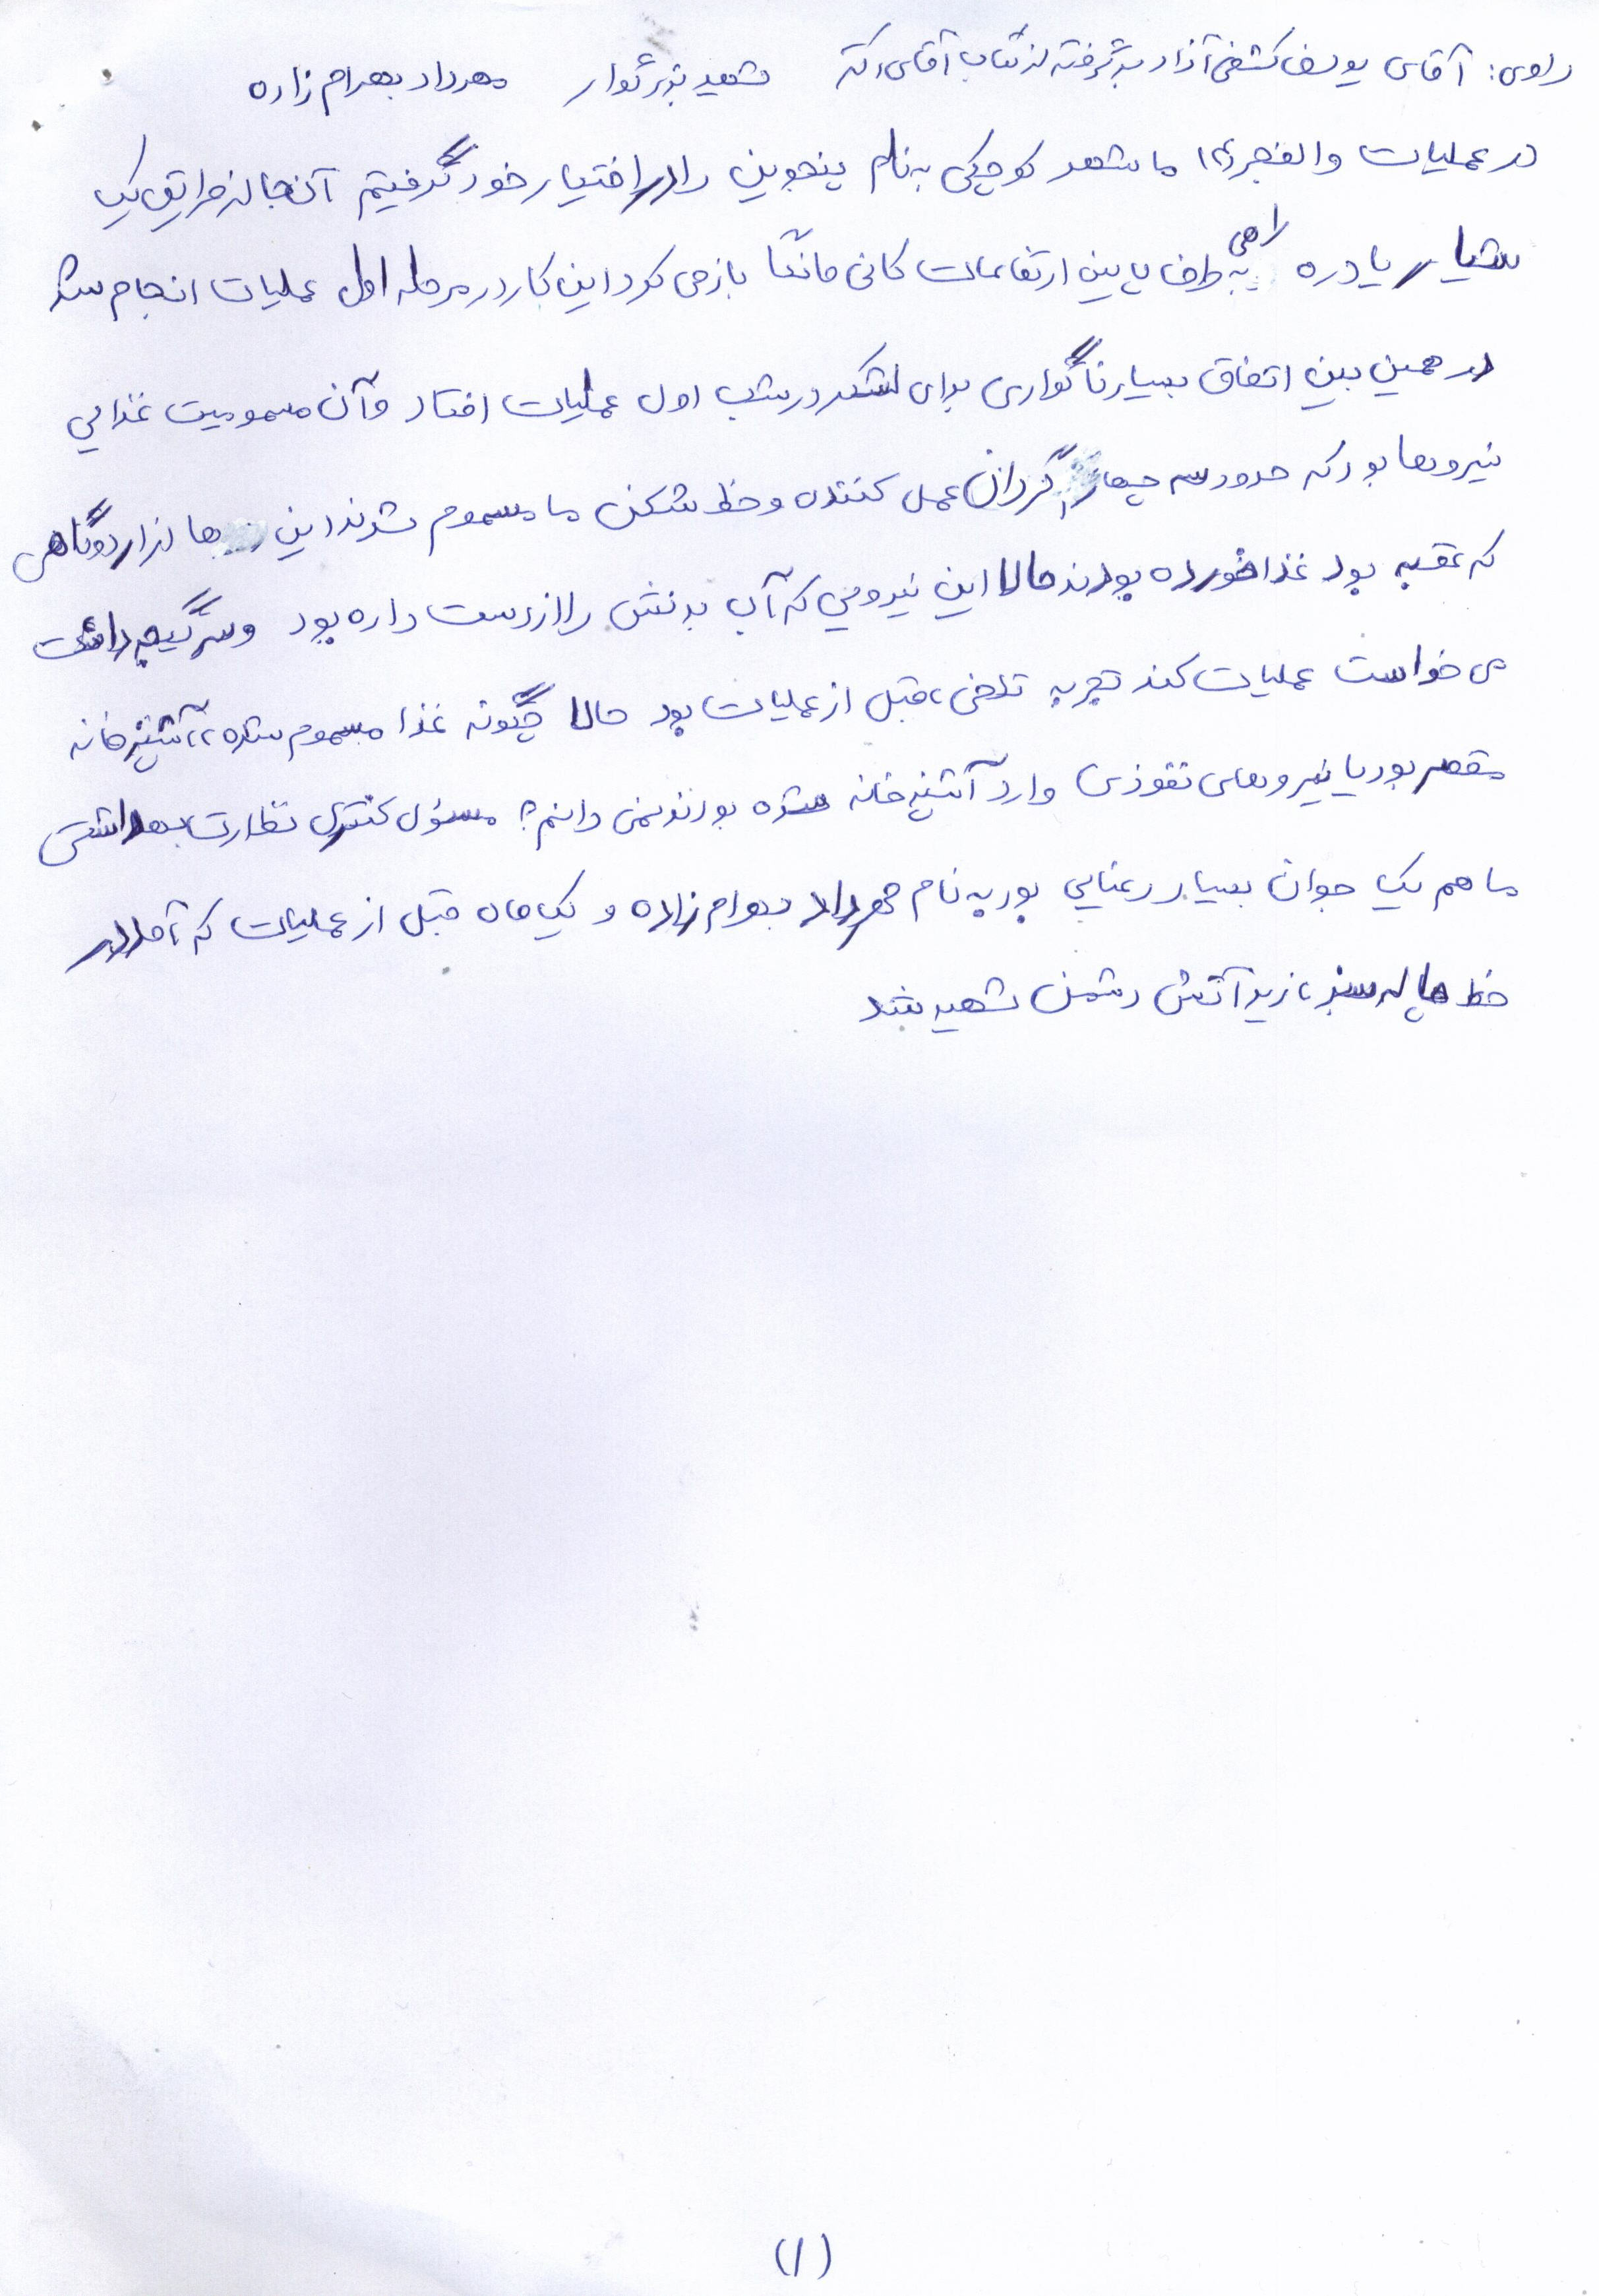 راوی: آقای یوسف کشفی آزاد برگرفته از کتاب آقای شهید بزرگوار مهرداد بهرام زاده
در عملیات والفجر ۴ ما شهر کوچکی به نام پنجوین را در اختیار خود گرفتیم آنجا از طریق یک
شیار یا دره راهی به طرف پایین ارتفاعات کانی مانگا باز می کرد این کار در مرحله اول عملیات انجام شد
در همین بین اتفاق بسیار ناگواری برای لشکر در شب اول عملیات افتاد و آن مسمومیت غذایی
نیروها بود که حدود سه چهار گردان عمل کننده و خط شکن ما مسموم شدند این ها از اردوگاهی
که عقبه بود غذا خورده بودند حالا این نیرویی که آب بدنش را از دست داده بود و سرگیجه داشت
می خواست عملیات کند تجربه تلخی، قبل از عملیات بود حالا چگونه غذا مسموم شده،، آشپزخانه
مقصر بود یا نیروهای نفوذی وارد آشپزخانه شده بودند نمی دانم؟ مسئول کنترل نظارت بهداشتی
ما هم یک جوان بسیار رعنایی بود به نام مهرداد بهرام زاده و یک ماه قبل از عملیات که آمد در
خط ما زیر آتش دشمن شهید شد
(۱)